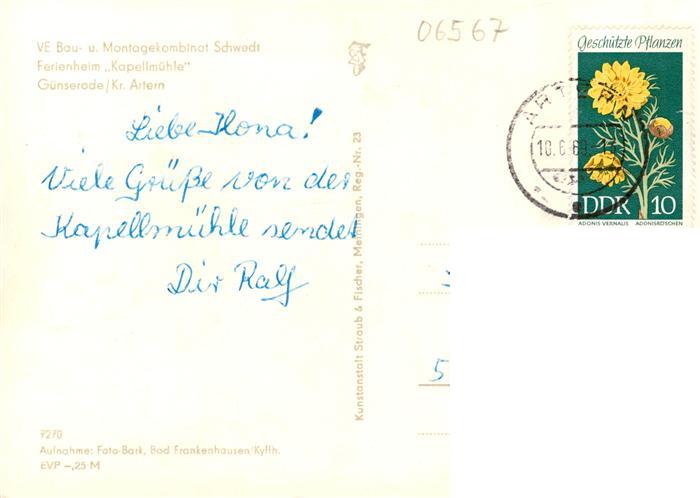 06567
VE Bau- u. Montagekombinat Schwedt
Ferienheim „Kapellmühle"
Günserode/Kr. Artern
Liebe Ilona!
Viele Grüße von der
Kapellmühle sendet
Dir Ralf
7270
Aufnahme: Foto-Bark, Bad Frankenhausen/Kyffh.
EVP –,25 M
Kunstanstalt Straub & Fischer, Meiningen, Reg.-Nr. 23
5
Geschützte Pflanzen
ARTERN
10.6.69
DDR 10
ADONIS VERNALIS ADONISRÖSCHEN